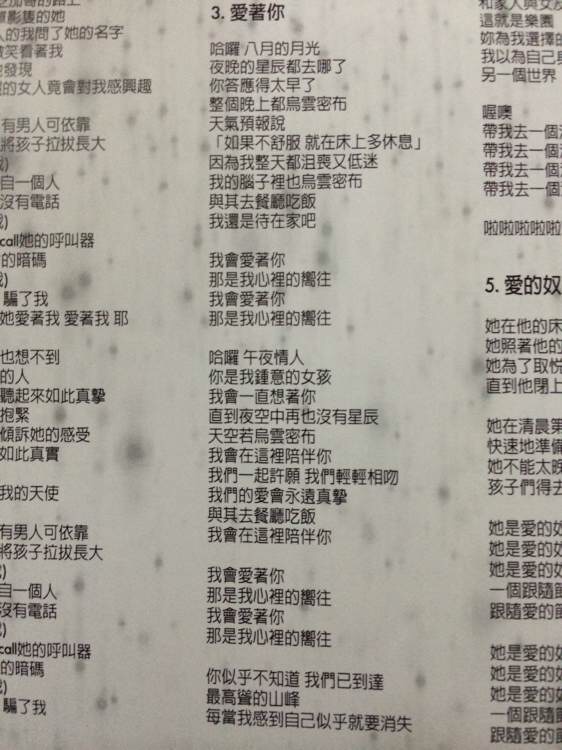 單影隻的她
人的我問了她的名字
微笑看著我
發現
的女人竟會對我感興趣
有男人可依靠
將孩子拉拔長大
自一個人
沒有電話
call她的呼叫器
的暗碼
騙了我
她愛著我 愛著我 耶
也想不到
的人
聽起來如此真摯
抱緊
傾訴她的感受
如此真實
我的天使
有男人可依靠
將孩子拉拔長大
自一個人
沒有電話
call她的呼叫器
的暗碼
騙了我
3. 愛著你
哈囉 八月的月光
夜晚的星辰都去哪了
你答應得太早了
整個晚上都烏雲密布
天氣預報說
「如果不舒服 就在床上多休息」
因為我整天都沮喪又低迷
我的腦子裡也烏雲密布
與其去餐廳吃飯
我還是待在家吧
我會愛著你
那是我心裡的嚮往
我會愛著你
那是我心裡的嚮往
哈囉 午夜情人
你是我鍾意的女孩
我會一直想著你
直到夜空中再也沒有星辰
天空若烏雲密布
我會在這裡陪伴你
我們一起許願 我們輕輕相吻
我們的愛會永遠真摯
與其去餐廳吃飯
我會在這裡陪伴你
我會愛著你
那是我心裡的嚮往
我會愛著你
那是我心裡的嚮往
你似乎不知道 我們已到達
最高聳的山峰
每當我感到自己似乎就要消失
和家人與女
這就是樂園
妳為我選擇
我以為自己
另一個世界
喔噢
帶我去一個
帶我去一個
帶我去一個
帶我去一個
啦啦啦啦啦
5. 愛的奴
她在他的床
她照著他的
她為了取悅
直到他閉上
她在清晨第
快速地準備
她不能太晚
孩子們得去
她是愛的奴
她是愛的奴
她是愛的奴
一個跟隨
跟隨愛的
她是愛的奴
她是愛的奴
她是愛的奴
一個跟隨
跟隨愛的